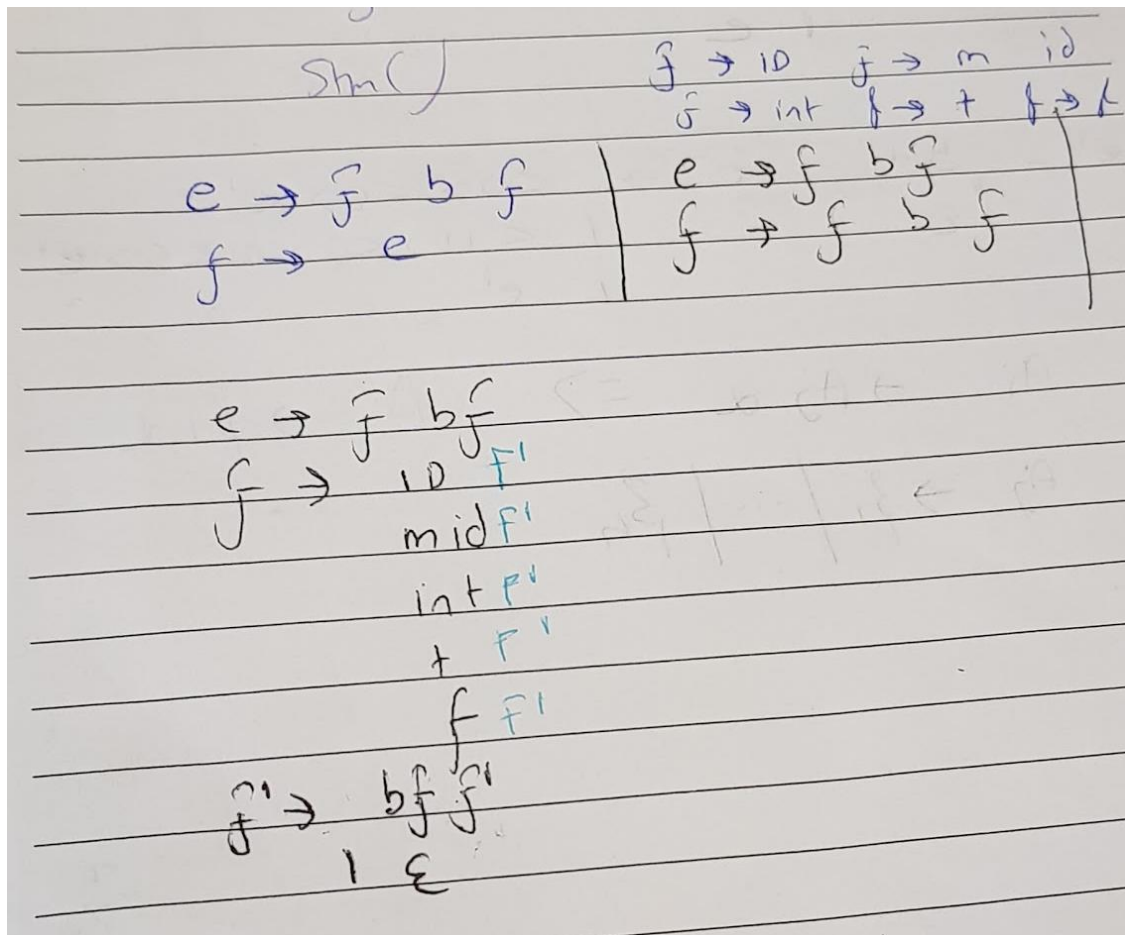 Stm()
f → ID f → m id
f → int f → + f → f
e → f b f
f → e
e → f b f
f → f b f
e → f b f
f → ID F'
mid F'
int F'
+ F'
f F'
f' → b f f'
| ε